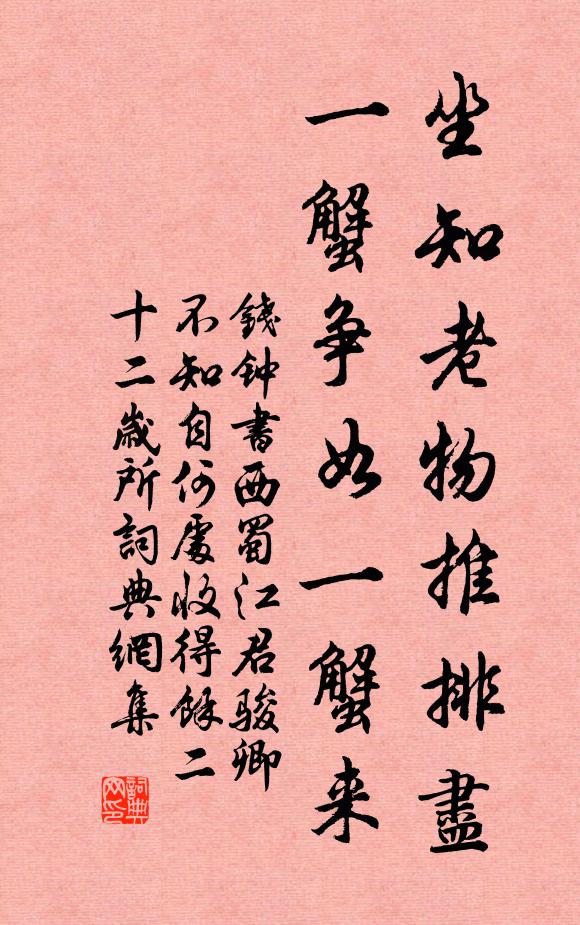 坐知老物推排盡
一蟹争如一蟹来
錢钟書西蜀江君骏卿
不知自何處收得餘二
十二歲所詞典網集
詞典网印